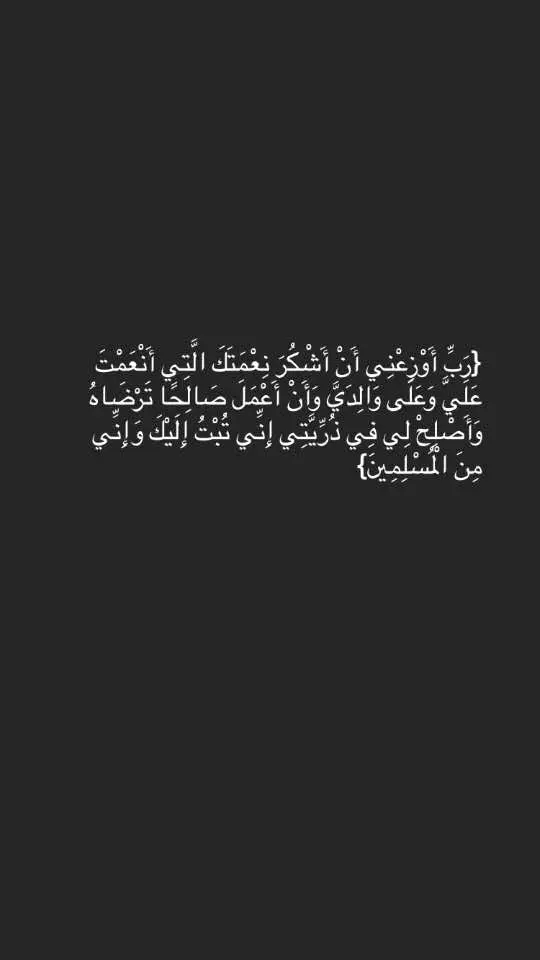 {رَبِّ أَوْزِعْنِي أَنْ أَشْكُرَ نِعْمَتَكَ الَّتِي أَنْعَمْتَ
عَلَيَّ وَعَلَى وَالِدَيَّ وَأَنْ أَعْمَلَ صَالِحًا تَرْضَاهُ
وَأَصْلِحْ لِي فِي ذُرِّيَّتِي إِنِّي تُبْتُ إِلَيْكَ وَإِنِّي
مِنَ الْمُسْلِمِينَ}